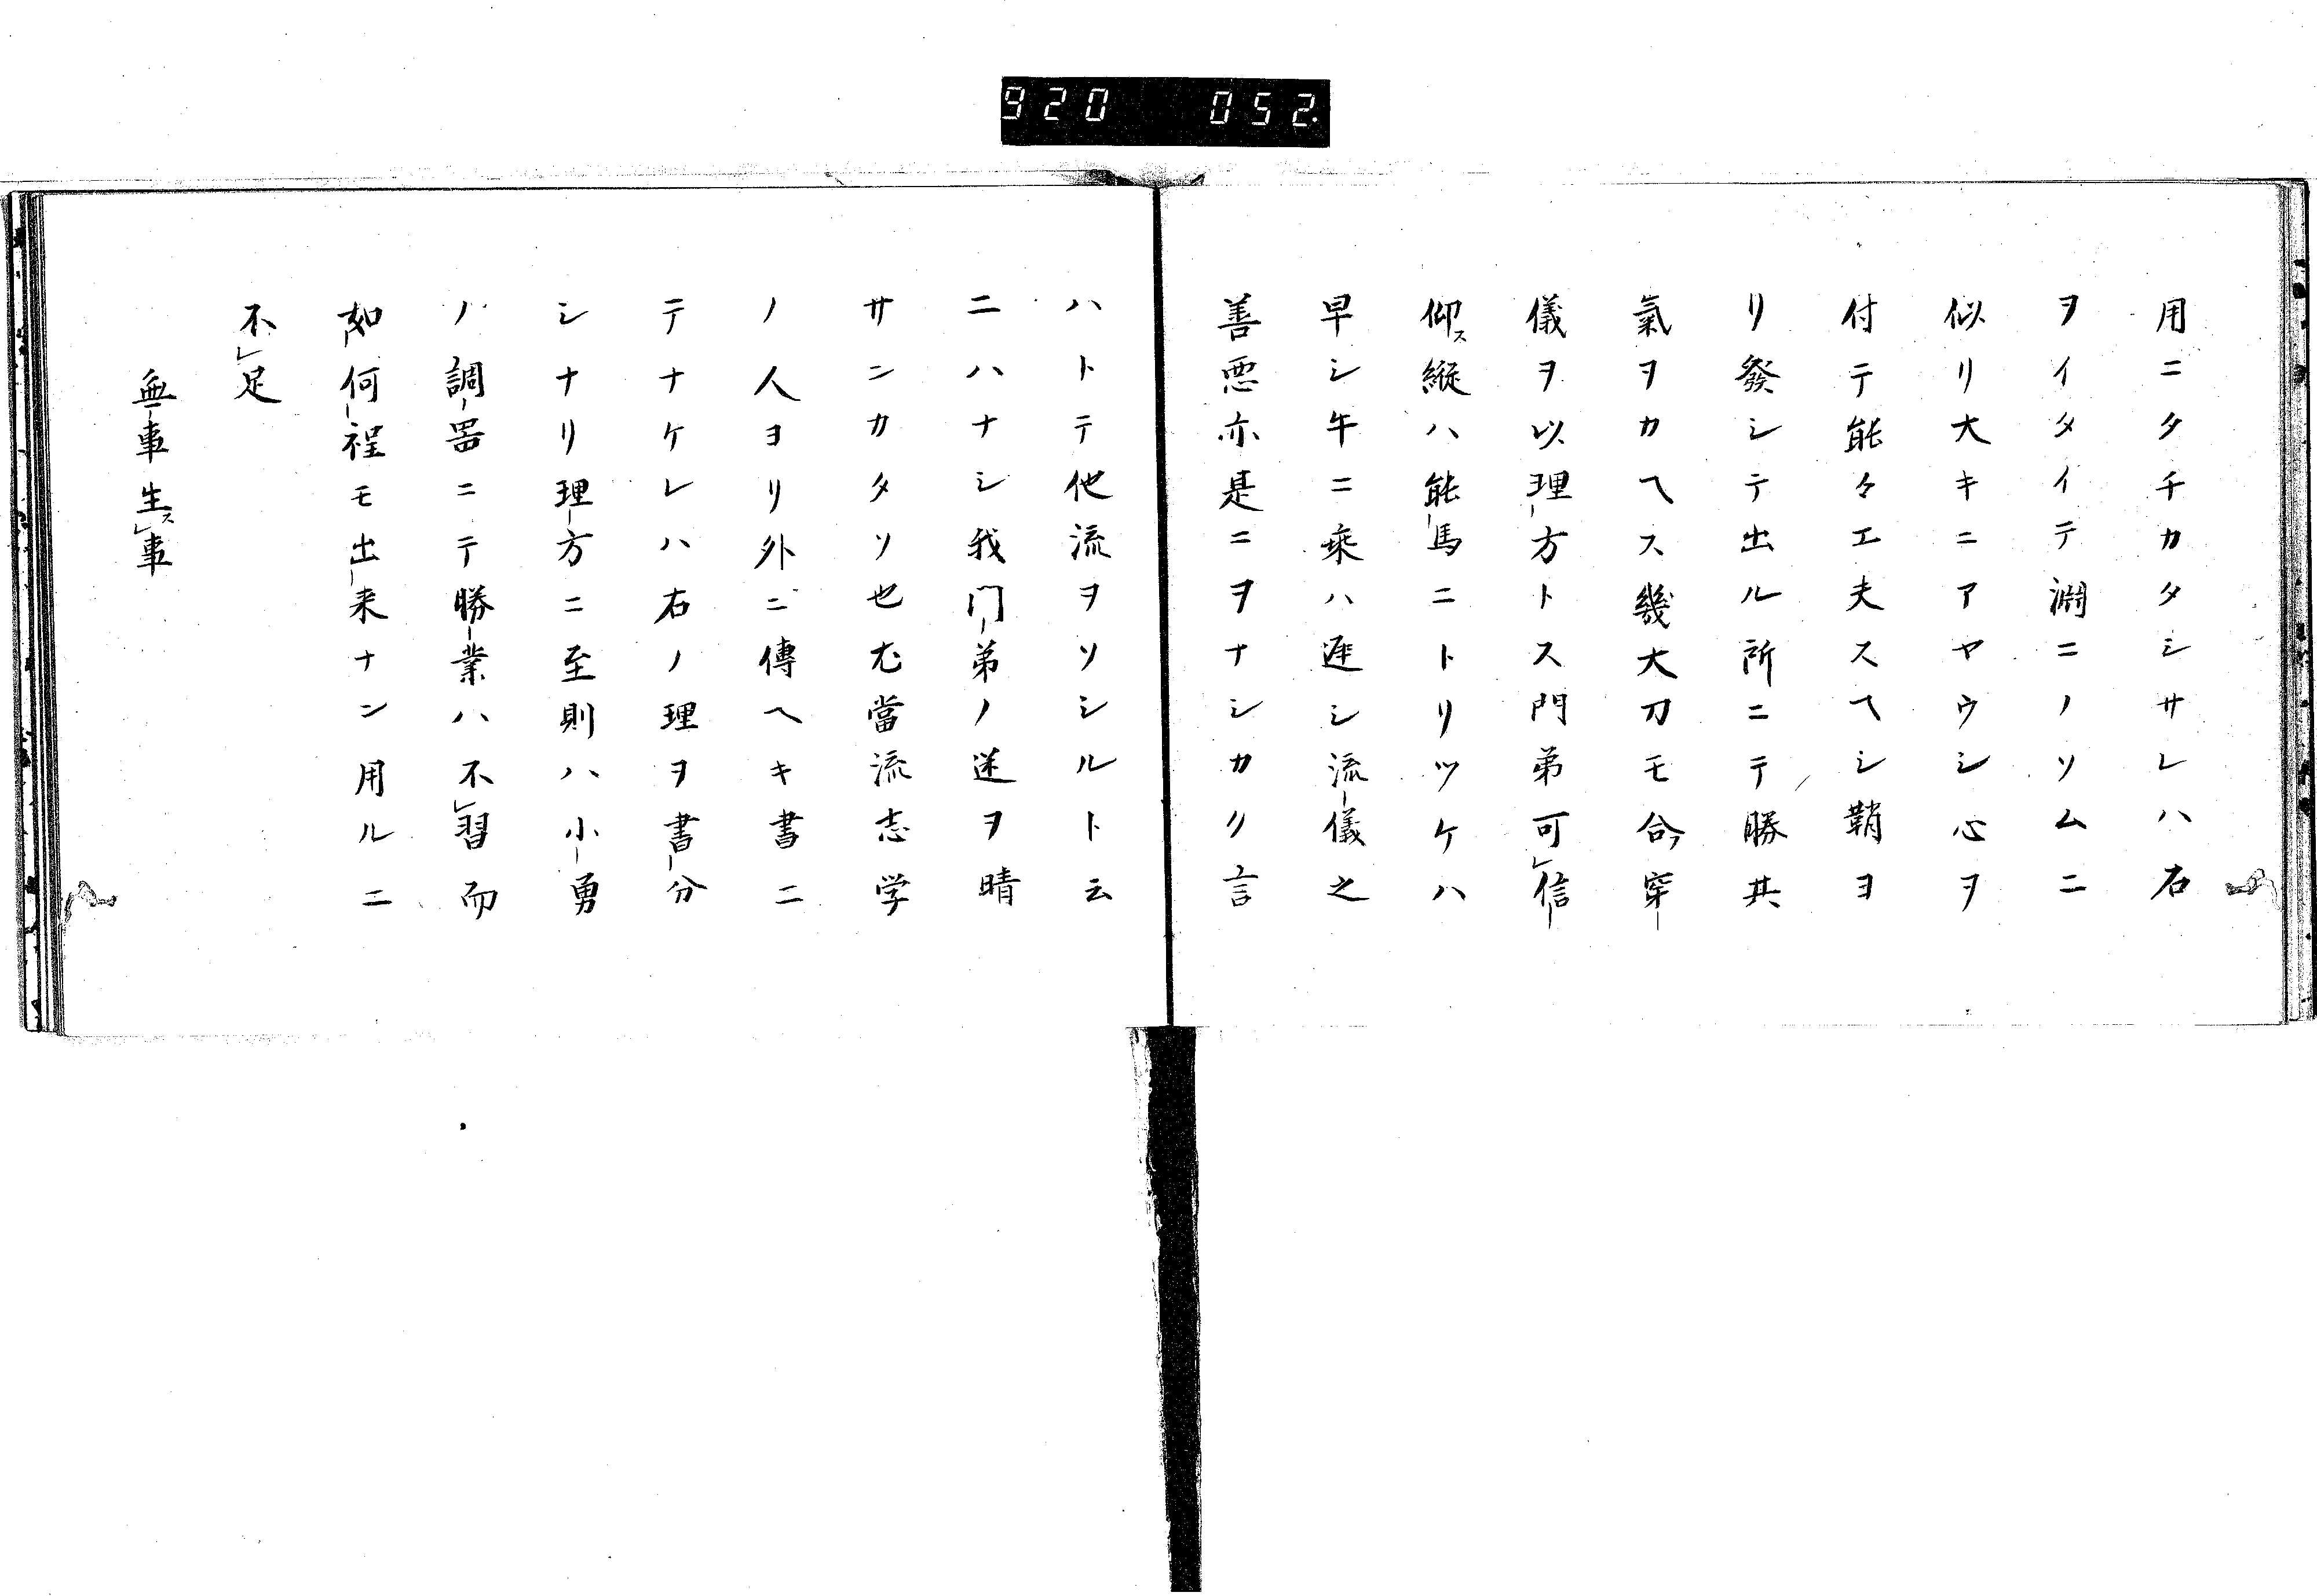 920 052
用ニタチカタシサレハ石
ヲイタイテ淵ニノソムニ
似リ大キニアヤウシ心ヲ
付テ能々工夫スヘシ鞘ヨ
リ發シテ出ル所ニテ勝其
氣ヲカヘス幾大刀モ合穿
儀ヲ以理方トス門弟可レ信
仰ス縦ハ能馬ニトリツケハ
早シ牛ニ乗ハ遅シ流儀之
善悪亦是ニヲナシカリ言
ハトテ他流ヲソシルト云
ニハナシ我門弟ノ迷ヲ晴
サンカタソ也尤當流志学
ノ人ヨリ外ニ傳ヘキ書ニ
テナケレハ右ノ理ヲ書分
シナリ理方ニ至則ハ小勇
ノ調畧ニテ勝業ハ不レ習而
如何程モ出来ナン用ルニ
不レ足
無事生スレ事